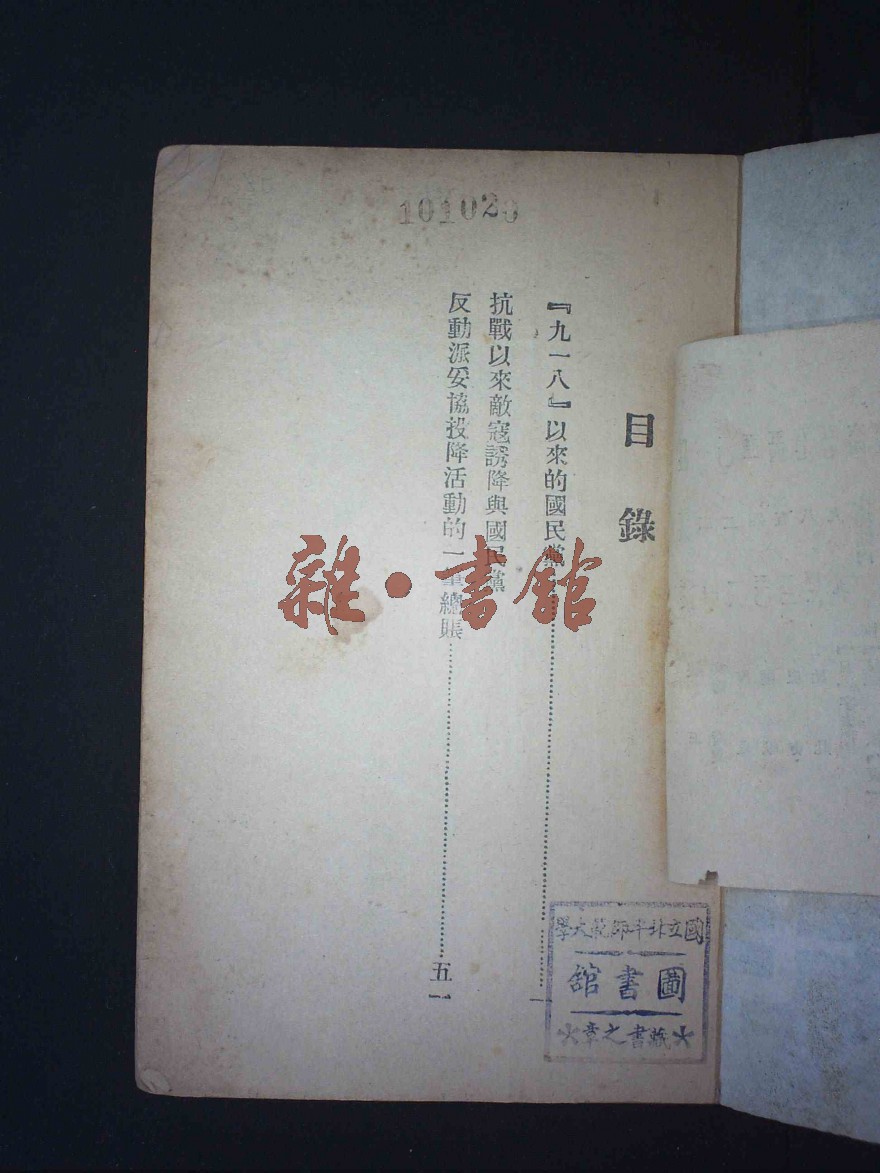 101020
目錄
『九一八』以來的國民黨…………一
抗戰以來敵寇誘降與國民黨
反動派妥協投降活動的一筆總賬…………五一
雜·書館
國立北平師範大學
圖書館
藏書之章